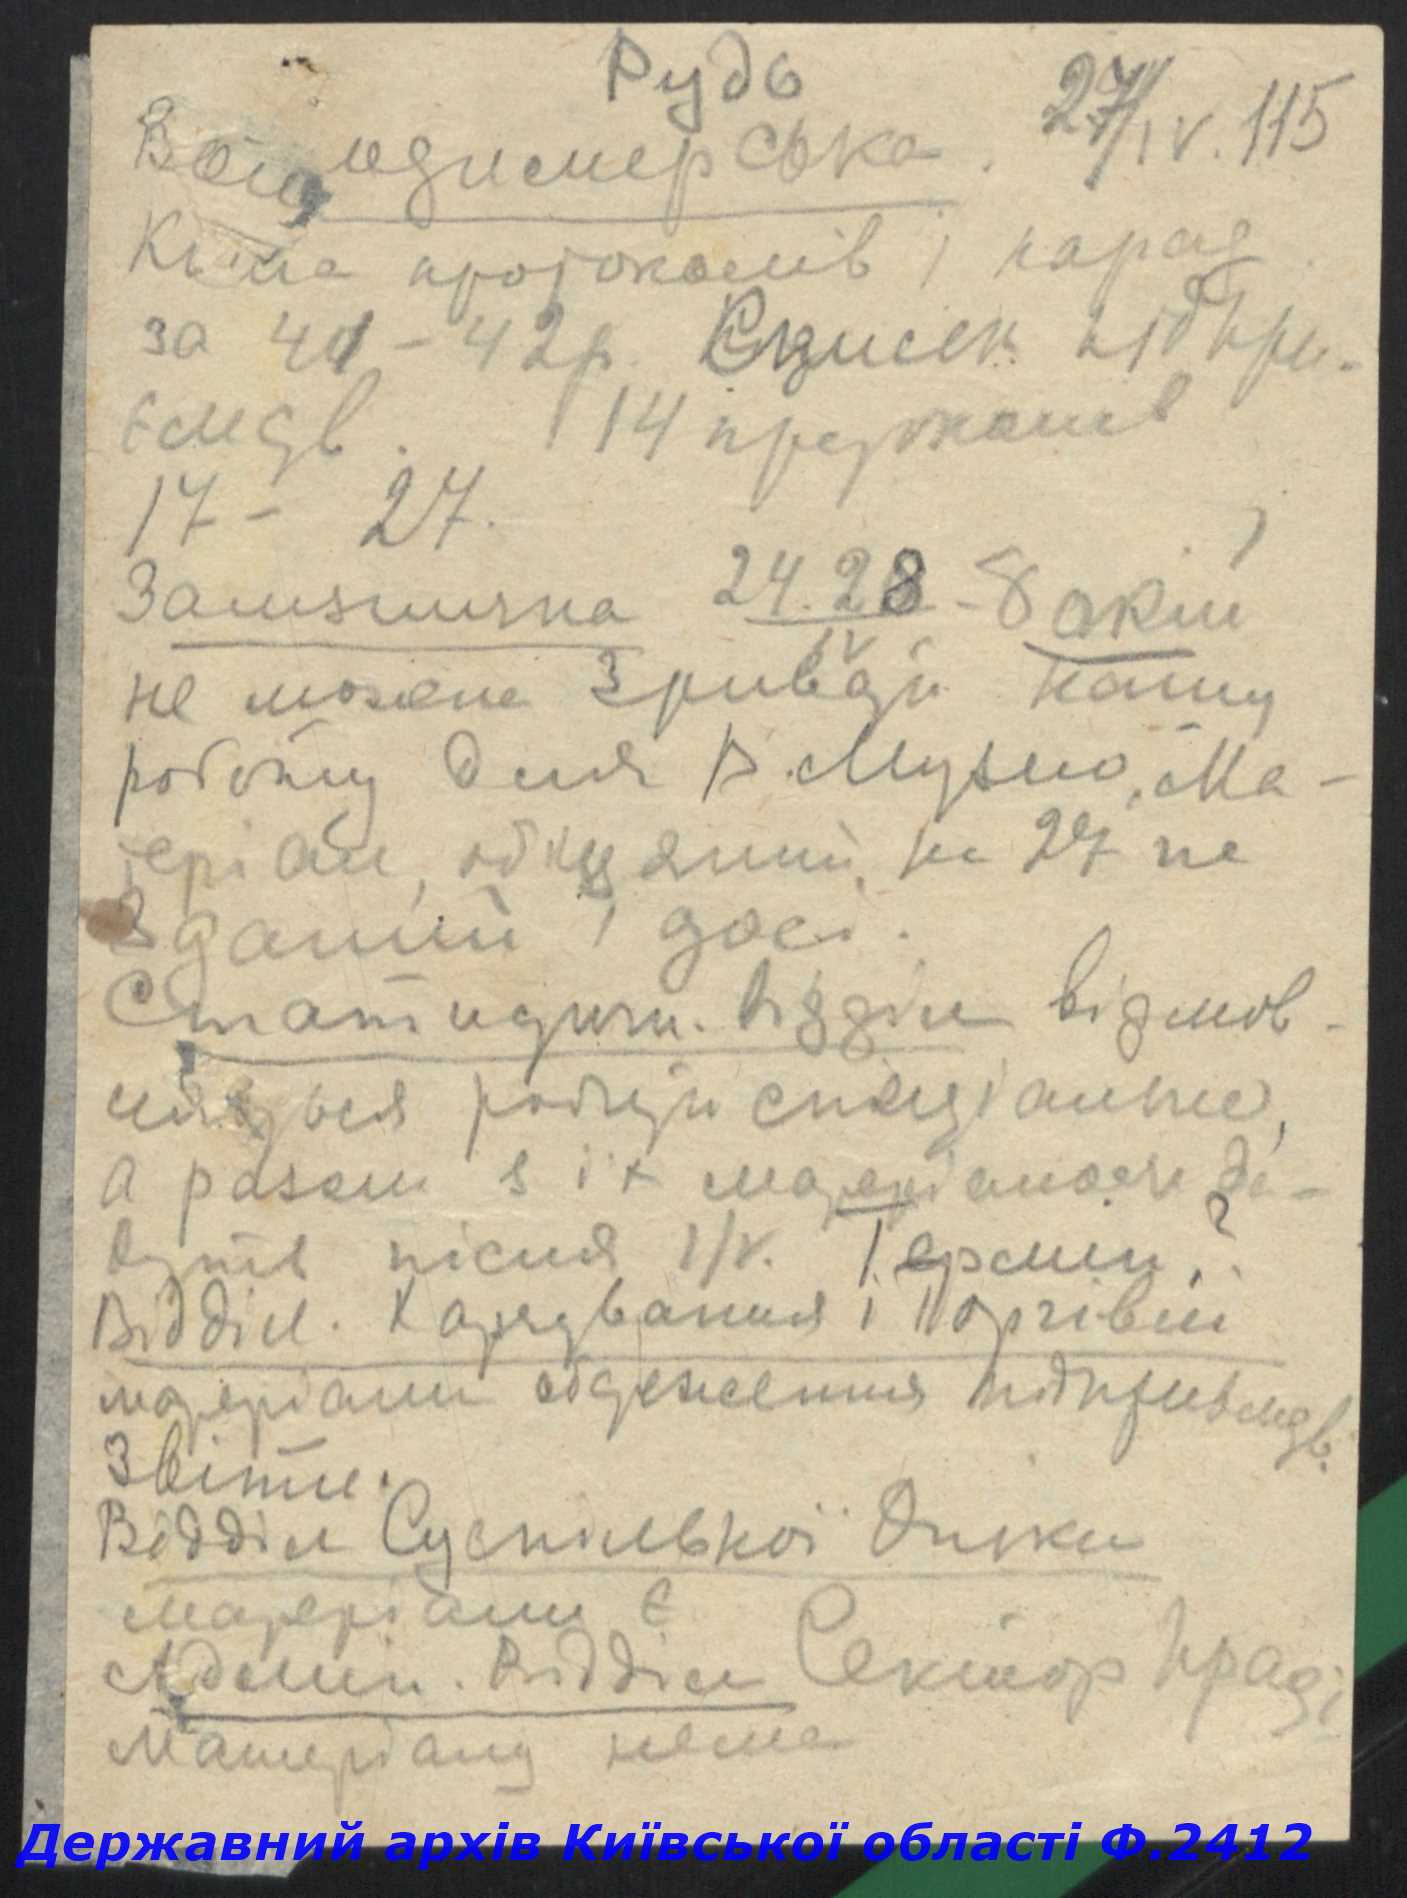 Рудь
27/IV. 115
Володимерська.
Книга протоколів і нарад
за 41-42р. Список підпри-
ємств. 14 протоколів
17 - 27.
Залізнична 24.28 - 8 акій
IV
не може зробити нашу
роботу для В. Музею, Ма-
теріал, обіцяний на 27 не
зданий і досі.
Статистичн. Відділ відмов-
ляється робити спеціально,
а разом з їх матеріалом да-
дуть після 1/V. Термін?
Відділ. Харчування і Торгівлі
матеріали обстеження підприємств.
Звіти.
Відділ Суспільної Опіки
матеріали є
Адмін. Відділ Сектор праці
Матеріалу нема
Державний архів Київської області Ф.2412